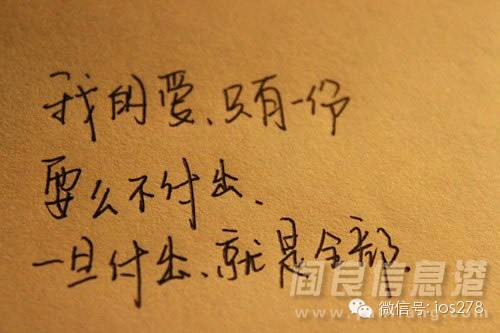 我的爱、只有一份
要么不付出、
一旦付出、就是全部.
阎良信息港
微信号: jos278